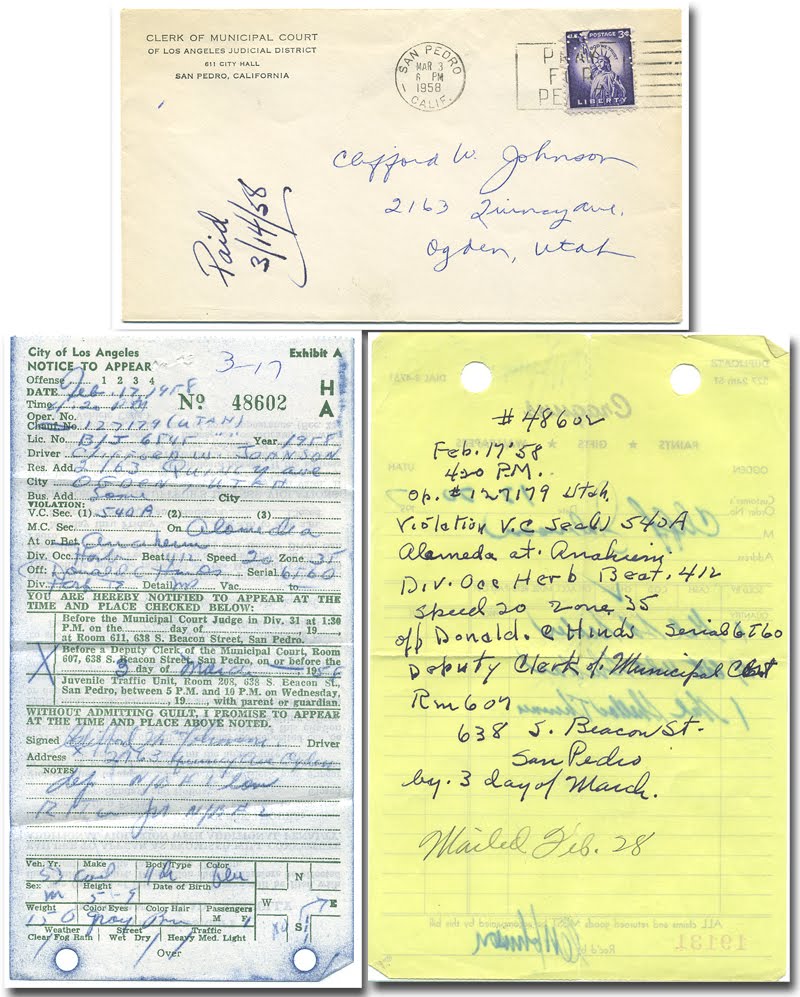 CLERK OF MUNICIPAL COURT
OF LOS ANGELES JUDICIAL DISTRICT
611 CITY HALL
SAN PEDRO, CALIFORNIA
SAN PEDRO
MAR 3
6 PM
1958
CALIF.
P
F R
PE
U.S. POSTAGE 3¢
LIBERTY
Clifford W. Johnson
2163 Quincy ave.
Ogden, Utah
Paid
3/14/58
City of Los Angeles
Exhibit A
NOTICE TO APPEAR
3-17
Offense 1 2 3 4
H
A
DATE Feb 17, 1958
Time 4:20 PM
No. 48602
Oper. No.
Chauf. No. 127179 (UTAH)
Lic. No. B/J 6845 Year 1958
Driver CLIFFORD W. JOHNSON
Res. Add. 2163 QUINCY ave
City OGDEN, UTAH
Bus. Add. Same City
VIOLATION:
V.C. Sec. (1) 540A (2) (3)
M.C. Sec. On Alameda
At or Bet. Anaheim
Div. Occ. Harb Beat 412 Speed 20 Zone 35
Off: Donald C Hinds Serial 6760
Div. Detail Vac. to
YOU ARE HEREBY NOTIFIED TO APPEAR AT THE
TIME AND PLACE CHECKED BELOW:
Before the Municipal Court Judge in Div. 31 at 1:30
P.M. on the day of 19
at Room 611, 638 S. Beacon Street, San Pedro.
X
Before a Deputy Clerk of the Municipal Court, Room
607, 638 S. Beacon Street, San Pedro, on or before the
3 day of March 195
Juvenile Traffic Unit, Room 208, 638 S. Beacon St.,
San Pedro, between 5 P.M. and 10 P.M. on Wednesday,
, 19 , with parent or guardian.
WITHOUT ADMITTING GUILT, I PROMISE TO APPEAR
AT THE TIME AND PLACE ABOVE NOTED.
Signed Clifford W. Johnson Driver
Address 2163 Quincy Ave Ogden
NOTES
Veh. Yr. Make Body Type Color
53
N
Sex Height Date of Birth
m 5-9
W E
Weight Color Eyes Color Hair Passengers
150 gray M F
S
Weather Street Traffic
Clear Fog Rain Wet Dry Heavy Med. Light
Over
DUPLICATE
DIAL 2-4751
327 24th ST
Craven's
PAINTS ★ GIFTS ★ WALLPAPERS
OGDEN UTAH
Customer's
Order No.
M
Address
# 48602
Feb. 17 '58
420 P.M.
Op. # 127179 Utah
Violation V.C Sec(1) 540A
Alameda at. Anaheim
Div. Occ Herb Beat. 412
Speed 20 zone 35
off Donald. C Hinds Serial 6760
Deputy Clerk of Municipal Court
Rm 607
638 S. Beacon St.
San Pedro
by. 3 day of March.
Mailed Feb. 28
ALL claims and returned goods MUST be accompanied by this bill
19131
Rec'd by